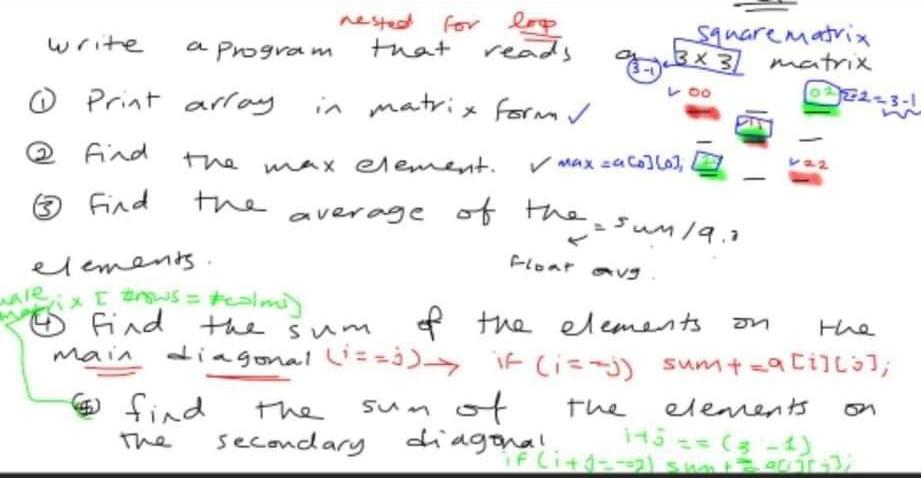 nested for loop
square matrix
write a program that reads a 3x3 matrix
(3-1)
00 02 2=3-1
① Print array in matrix form ✓
11
② Find the max element. ✓ max=a[0][0];
22
③ Find the average of the = sum/9.
elements. float avg.
matrix [ #rows = #colms]
④ Find the sum of the elements on the
main diagonal (i==j) → if (i==j) sum+=a[i][j];
⑤ find the sum of the elements on
the secondary diagonal i+j == (3-1)
if(i+j==2) sum+=a[i][j];